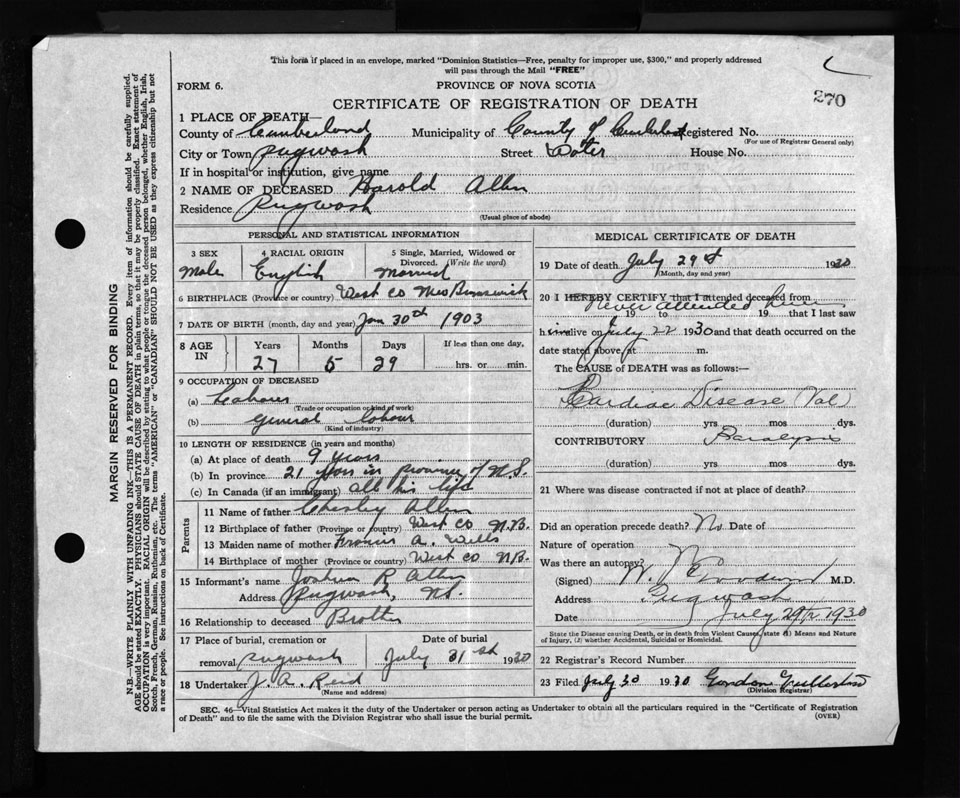 This form if placed in an envelope, marked "Dominion Statistics—Free, penalty for improper use, $300," and properly addressed
will pass through the Mail "FREE"
270
FORM 6.
PROVINCE OF NOVA SCOTIA
CERTIFICATE OF REGISTRATION OF DEATH
1 PLACE OF DEATH—
County of Cumberland Municipality of County of Registered No.
(For use of Registrar General only)
City or Town Pugwash Street Water House No.
If in hospital or institution, give name
2 NAME OF DECEASED Harold Allen
Residence Pugwash
(Usual place of abode)
PERSONAL AND STATISTICAL INFORMATION
3 SEX 4 RACIAL ORIGIN 5 Single, Married, Widowed or
Divorced. (Write the word)
Male English Married
6 BIRTHPLACE (Province or country) West Co New Brunswick
7 DATE OF BIRTH (month, day and year) Jan 30th 1903
8 AGE IN Years Months Days If less than one day,
27 5 29 hrs. or min.
9 OCCUPATION OF DECEASED
(a) Labourer
(Trade or occupation or kind of work)
(b) General labour
(Kind of industry)
10 LENGTH OF RESIDENCE (in years and months)
(a) At place of death 9 years
(b) In province 21 years in province of N.S.
(c) In Canada (if an immigrant) all his life
Parents
11 Name of father Chesley Allen
12 Birthplace of father (Province or country) West Co N.B.
13 Maiden name of mother Francis A. Wells
14 Birthplace of mother (Province or country) West Co N.B.
15 Informant's name Joshua R Allen
Address Pugwash, N.S.
16 Relationship to deceased Brother
17 Place of burial, cremation or Date of burial
removal Pugwash July 31st 1930
18 Undertaker J. A. Reid
(Name and address)
MEDICAL CERTIFICATE OF DEATH
19 Date of death July 29 1930
(Month, day and year)
20 I HEREBY CERTIFY that I attended deceased from
Never attended him
19 to 19 that I last saw
him alive on July 22 1930 and that death occurred on the
date stated above, at m.
The CAUSE of DEATH was as follows:—
Cardiac Disease
(duration) yrs mos dys.
CONTRIBUTORY Paralysis
(duration) yrs mos dys.
21 Where was disease contracted if not at place of death?
Did an operation precede death? No Date of
Nature of operation
Was there an autopsy?
(Signed) M.D.
Address Pugwash
Date July 29 1930
State the Disease causing Death, or in death from Violent Causes, state (1) Means and Nature
of Injury, (2) whether Accidental, Suicidal or Homicidal.
22 Registrar's Record Number
23 Filed July 30 1930 Gordon
(Division Registrar)
SEC. 46—Vital Statistics Act makes it the duty of the Undertaker or person acting as Undertaker to obtain all the particulars required in the "Certificate of Registration
of Death" and to file the same with the Division Registrar who shall issue the burial permit.
(OVER)
MARGIN RESERVED FOR BINDING
N.B.—WRITE PLAINLY WITH UNFADING INK—THIS IS A PERMANENT RECORD. Every item of information should be carefully supplied.
AGE should be stated EXACTLY. PHYSICIANS should STATE CAUSE OF DEATH in plain terms, so that it may be properly classified. Exact statement of
OCCUPATION is very important. RACIAL ORIGIN will be described by stating to what people or tongue the deceased person belonged, whether English, Irish,
Scotch, French, German, Russian, Ruthenian, etc. The terms "AMERICAN" or "CANADIAN" SHOULD NOT BE USED as they express citizenship but not
a race or people. See instructions on back of Certificate.